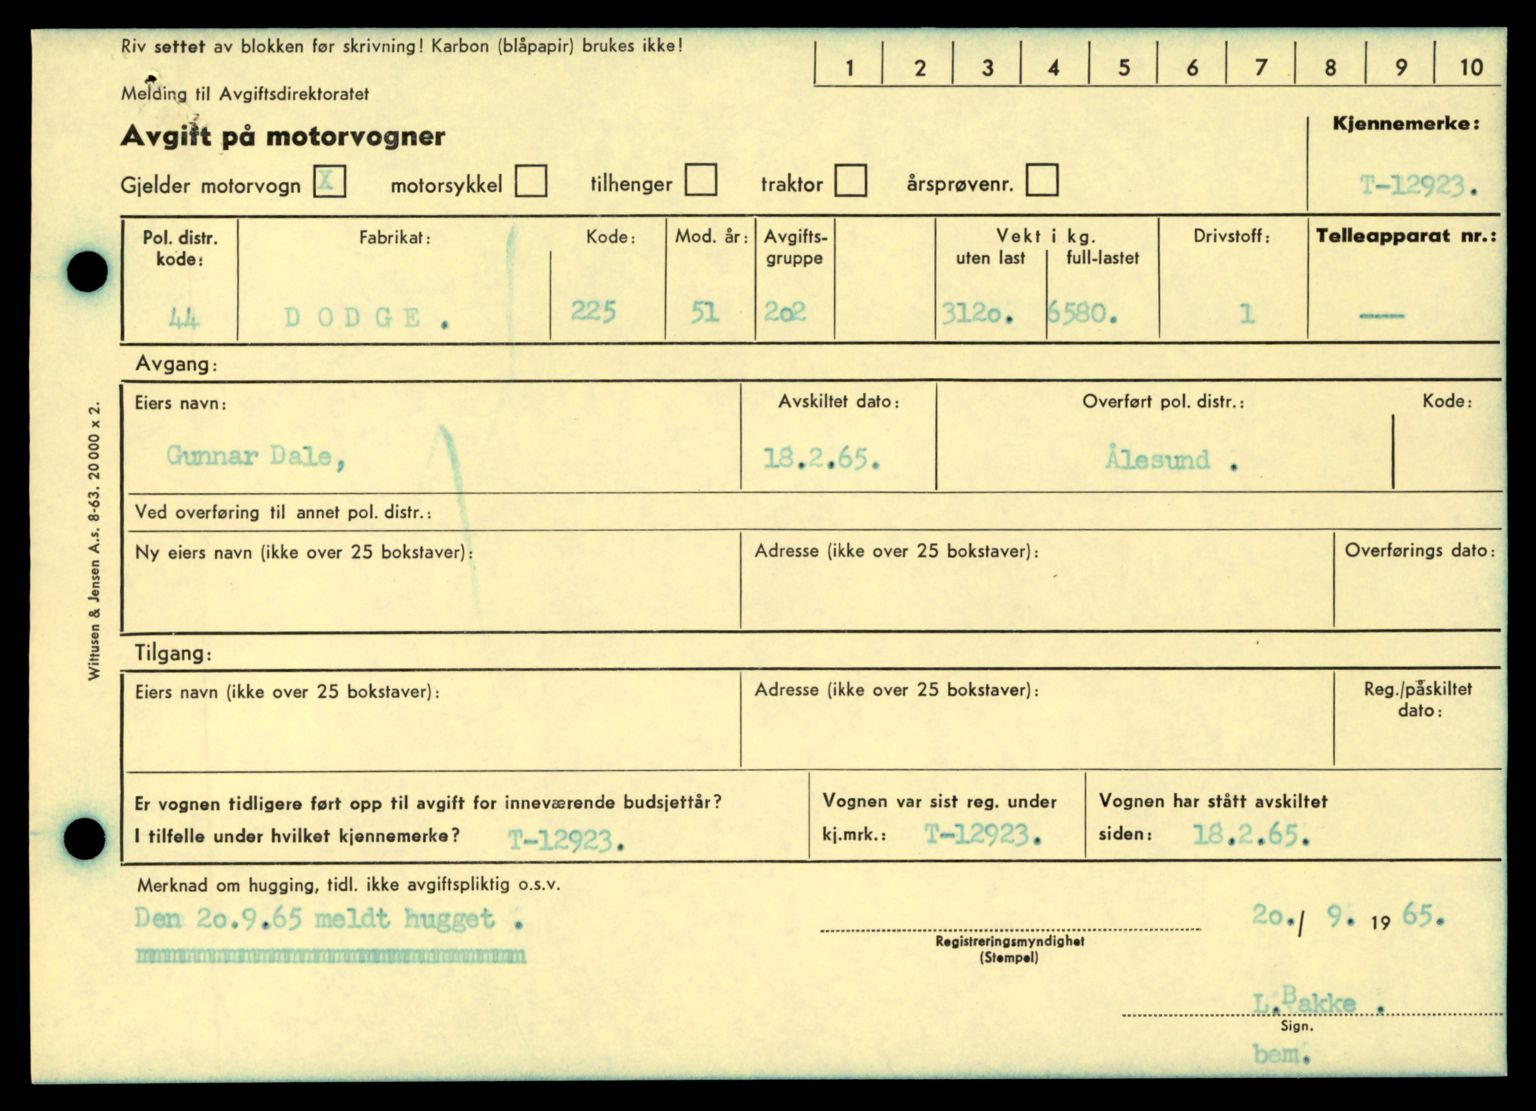 Riv settet av blokken før skrivning! Karbon (blåpapir) brukes ikke!
1 2 3 4 5 6 7 8 9 10
Melding til Avgiftsdirektoratet
Avgift på motorvogner
Kjennemerke:
Gjelder motorvogn X motorsykkel tilhenger traktor årsprøvenr.
T-12923.
Pol. distr. kode: Fabrikat: Kode: Mod. år: Avgifts-gruppe Vekt i kg. uten last full-lastet Drivstoff: Telleapparat nr.:
44 DODGE. 225 51 202 3120. 6580. 1 —
Avgang:
Eiers navn: Avskiltet dato: Overført pol. distr.: Kode:
Gunnar Dale, 18.2.65. Ålesund .
Ved overføring til annet pol. distr.:
Ny eiers navn (ikke over 25 bokstaver): Adresse (ikke over 25 bokstaver): Overførings dato:
Tilgang:
Eiers navn (ikke over 25 bokstaver): Adresse (ikke over 25 bokstaver): Reg./påskiltet dato:
Er vognen tidligere ført opp til avgift for inneværende budsjettår?
I tilfelle under hvilket kjennemerke? T-12923.
Vognen var sist reg. under
kj.mrk.: T-12923.
Vognen har stått avskiltet
siden: 18.2.65.
Merknad om hugging, tidl. ikke avgiftspliktig o.s.v.
Den 20.9.65 meldt hugget .
20./ 9. 19 65.
Registreringsmyndighet
(Stempel)
L.Bakke .
Sign.
bem.
Wittusen & Jensen A.s. 8-63. 20 000 x 2.